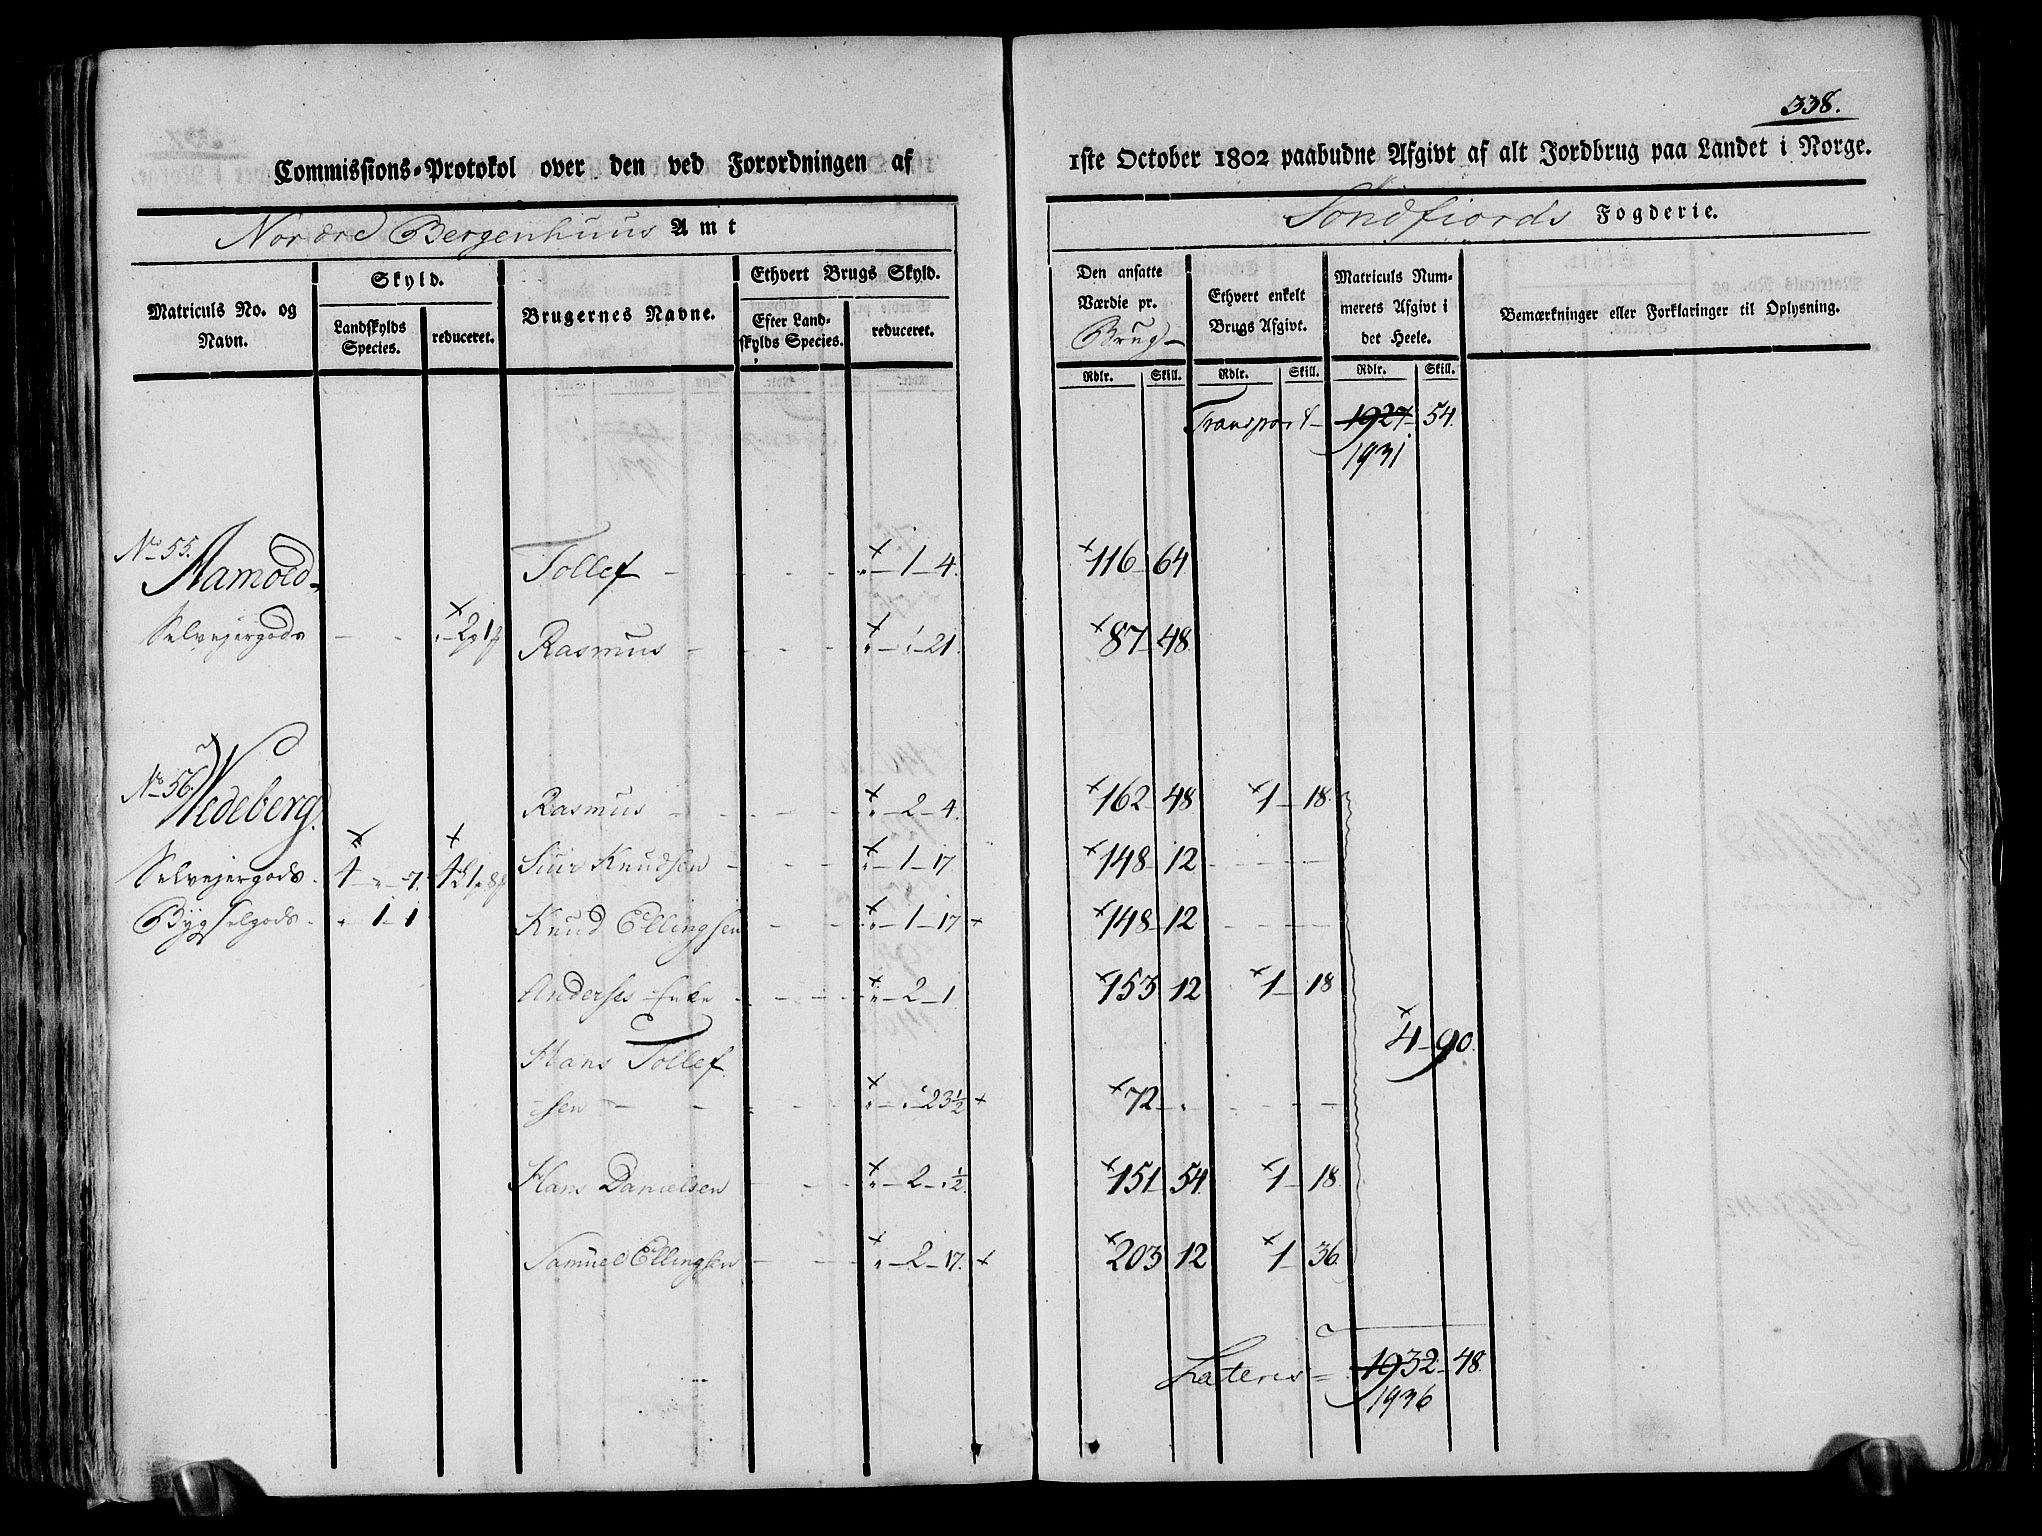 338.
Commissions-Protokol over den ved Forordningen af 1ste October 1802 paabudne Afgivt af alt Jordbrug paa Landet i Norge.
Nordre Bergenhuus Amt
Sondfiords Fogderie.
Matriculs No. og Navn.
Skyld.
Landskylds Species.
reduceret.
Brugernes Navne.
Ethvert Brugs Skyld.
Efter Landskylds Species.
reduceret.
Den ansatte Værdie pr. Brug
Ethvert enkelt Brugs Afgivt.
Matriculs Nummerets Afgivt i det Heele.
Bemærkninger eller Forklaringer til Oplysning.
Rdlr. Skill. Rdlr. Skill. Rdlr. Skill.
Transport 1927 54.
1931
No 55. Aamold Tollef - 1 - 4. 116 64
Selvejergods
Rasmus 21. 87 48
No 56. Wedeberg. Rasmus - 2 - 4. 162 48 1 - 18.
Selvejergods 4 - 7. Siur Knudsen - 1 - 17 148 12
Bygselgods 1 - 1 Knud Ellingsen - 1 - 17 148 12
Anderses Enke - 2 - 1 153 12 1 - 18
4 - 90.
Hans Tollef
sen 23½ 72
Hans Danielsen - 2 - ½ 151 54. 1 - 18.
Samuel Ellingsen - 2 - 17. 203 12 1 - 36.
Lateris = 1932 - 48.
1936